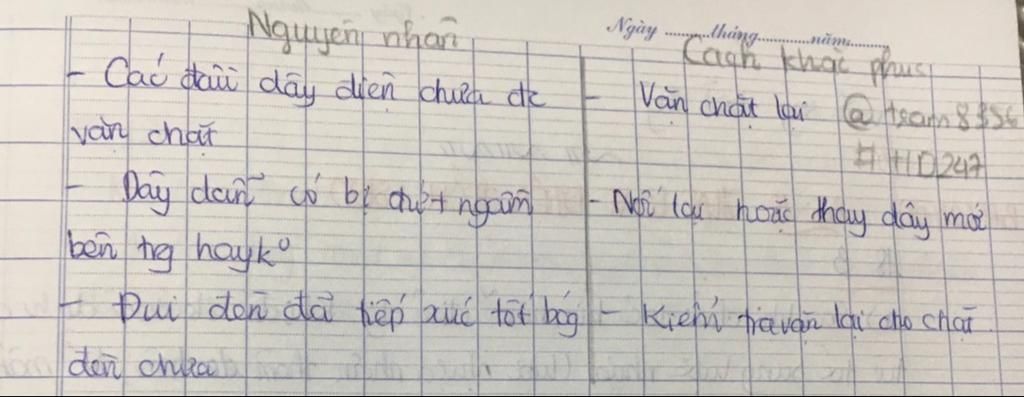 Ngày ........tháng..........năm........
Nguyên nhân
Cách khắc phục
- Các đầu dây điện chưa đc
vặn chặt
- Vặn chặt lại
@team8386
# HD247
- Dây dẫn có bị đứt ngầm
bên tg hay k°
- Nối lại hoặc thay dây mới
- Đui đèn đã tiếp xúc tốt bóg
đèn chưa
- Kiểm tra vặn lại cho chặt